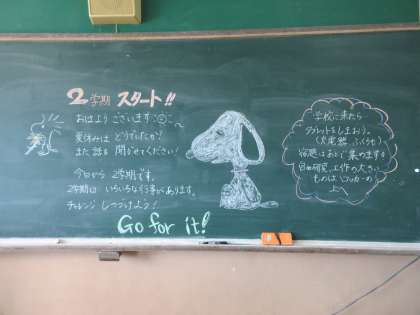 2学期 スタート!!
おはようございます
夏休みは どうでしたか?
また話を 聞かせてください!
今日から 2学期です。
2学期は いろいろな行事があります。
チャレンジ しつづけよう!
Go for it!
学校に来たら
タブレットをしまおう。
(充電器、ふくろも)
宿題はあとで集めます
自由研究、工作の大きい
ものはロッカーの
上へ